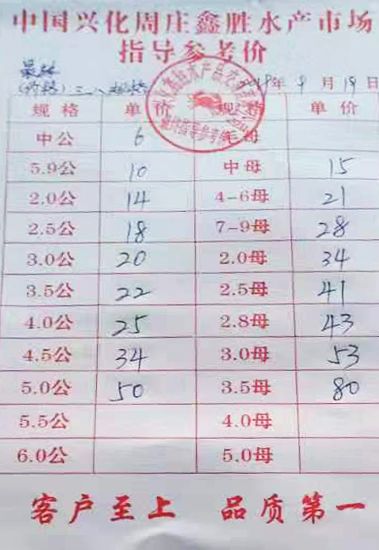 中国兴化周庄鑫胜水产市场
指导参考价
2018年9月19日
规格 单价 规格 单价
中公 6
5.9公 10 中母 15
2.0公 14 4-6母 21
2.5公 18 7-9母 28
3.0公 20 2.0母 34
3.5公 22 2.5母 41
4.0公 25 2.8母 43
4.5公 34 3.0母 53
5.0公 50 3.5母 80
5.5公 4.0母
6.0公 5.0母
客户至上 品质第一